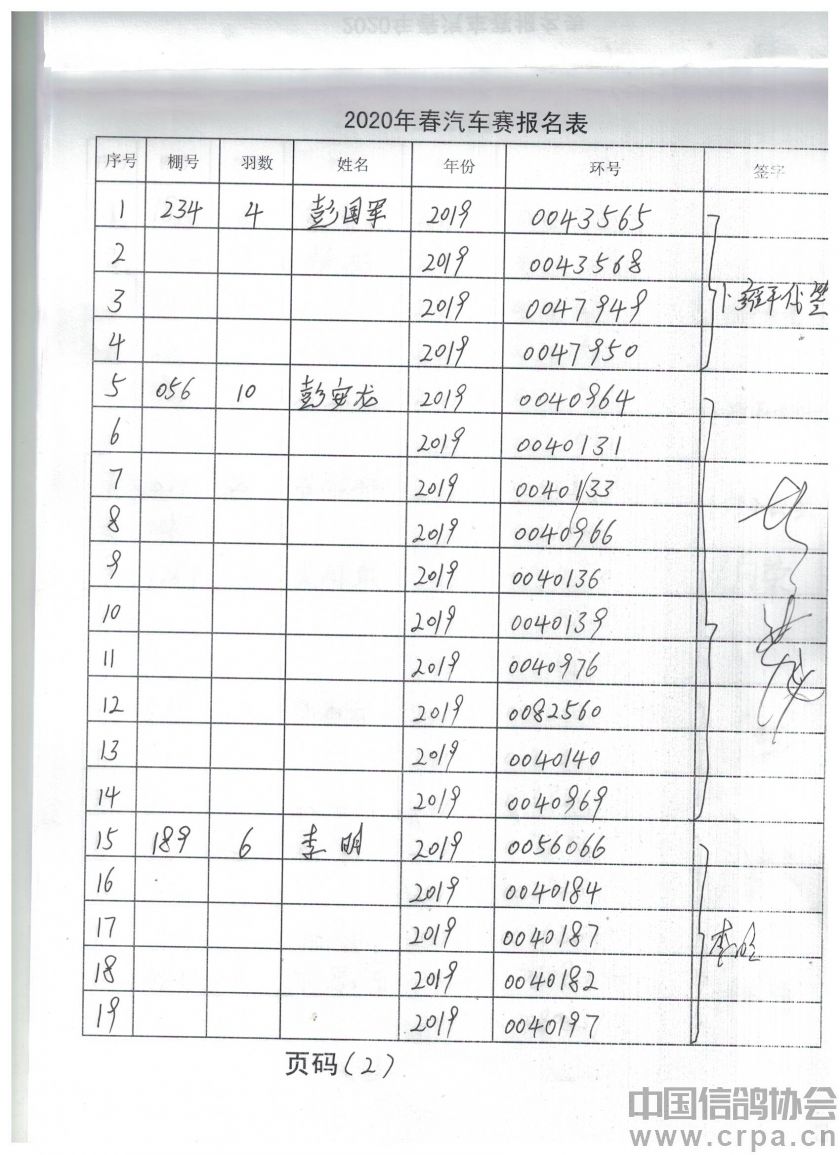 2020年春汽车赛报名表
序号 棚号 羽数 姓名 年份 环号 签字
1 234 4 彭国军 2019 0043565
2 2019 0043568
3 2019 0047949 代签
4 2019 0047950
5 056 10 彭安龙 2019 0040964
6 2019 0040131
7 2019 0040133
8 2019 0040966
9 2019 0040136
10 2019 0040139
11 2019 0040976
12 2019 0082560
13 2019 0040140
14 2019 0040969
15 189 6 李明 2019 0056066
16 2019 0040184
17 2019 0040187 李明
18 2019 0040182
19 2019 0040197
页码(2)
中国信鸽协会
www.crpa.cn